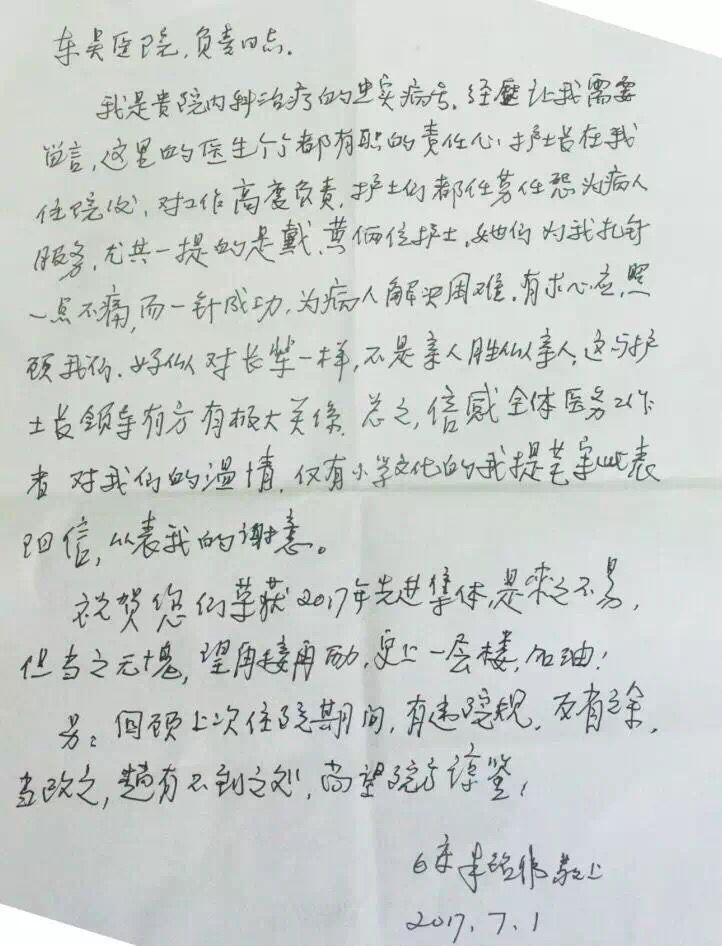 东吴医院,负责同志.
我是贵院内科治疗的忠实病号,经歷让我需要
留言,这里的医生个个都有职的责任心,护士长在我
住院后,对工作高度负责,护士们都任劳任怨为病人
服务,尤其一提的是戴、黄俩位护士,她们为我扎针
一点不痛,而一针成功,为病人解决困难,有求必应,照
顾我们,好似对长辈一样,不是亲人胜似亲人,这与护
士长领导有方有极大关係,总之,倍感全体医务工作
者对我们的温情,仅有小学文化的我提笔写此表
回信,以表我的谢意。
祝贺您们荣获2017年先进集体,是来之不易,
但当之无愧,望再接再励,更上一层楼,加油!
另:回顾上次住院期间,有违院规,反省之余,
当改之,倘有不到之处,尚望院方谅鉴,
6床 敬上
2017.7.1